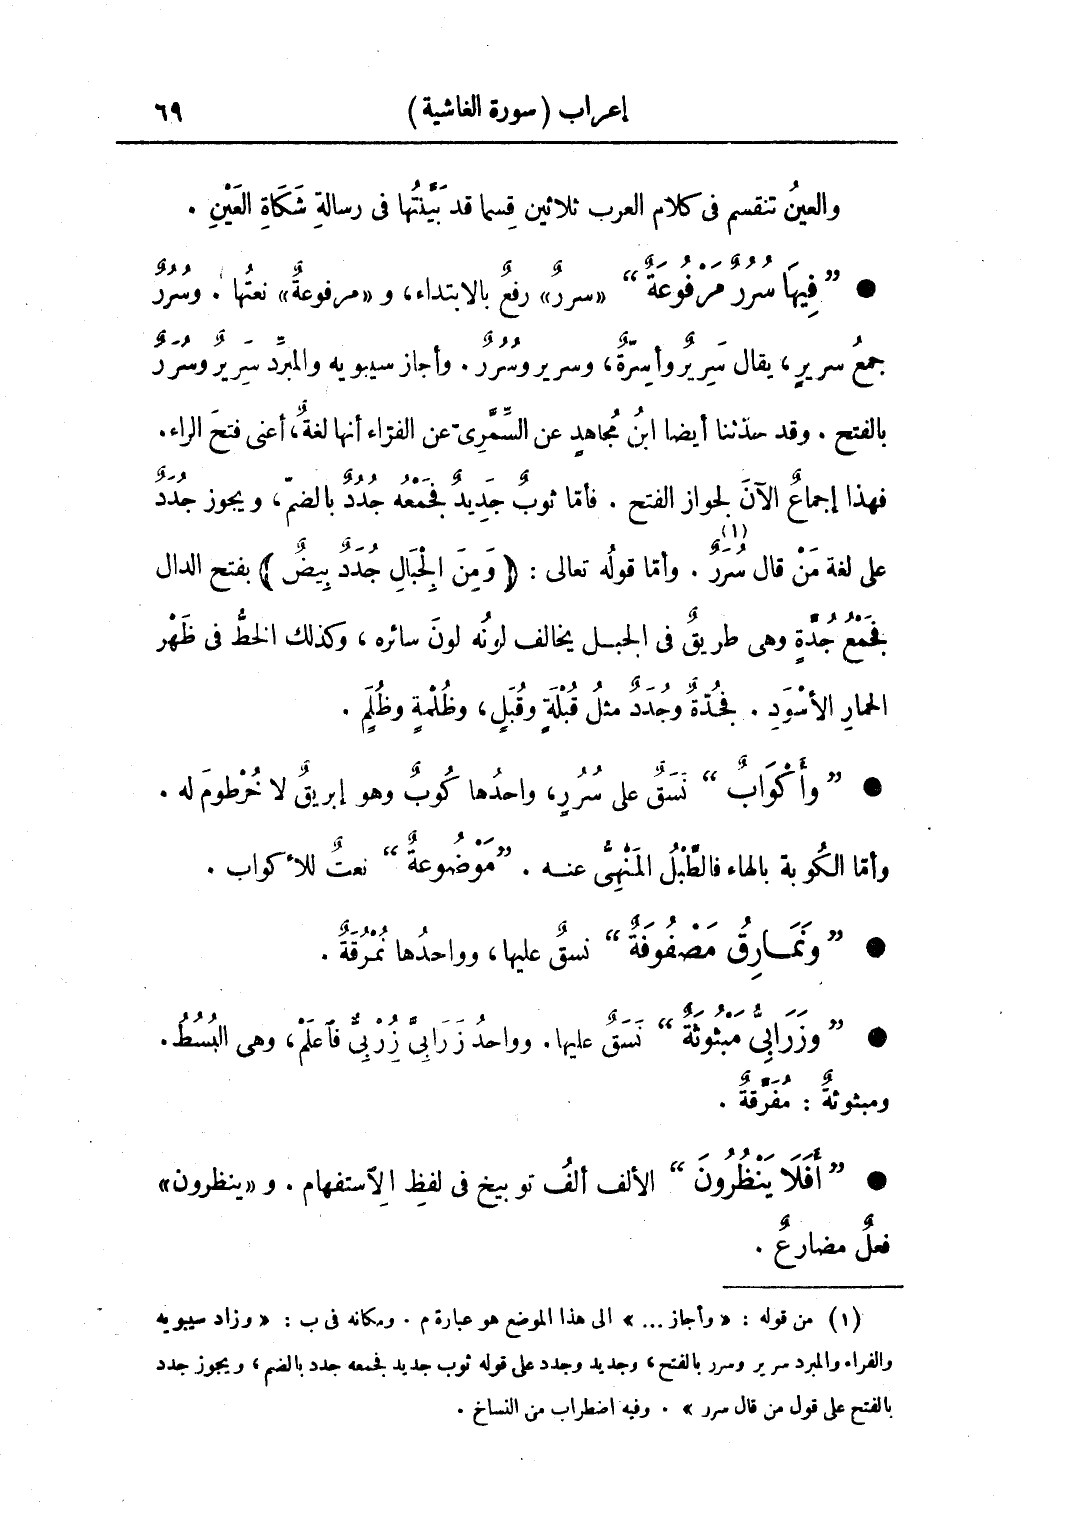 إعراب (سورة الغاشية) ٦٩
والعينُ تنقسم فى كلام العرب ثلاثين قِسما قد بَيَّنْتُها فى رسالةِ شَكَاةِ العَيْنِ .
● ”فِيهَا سُرُرٌ مَرْفُوعَةٌ“ «سررٌ» رفعٌ بالابتداء، و «مرفوعةٌ» نعتُها . وسُرُرٌ
جمعُ سريرٍ، يقال سَرِيرٌ وأسِرّةٌ، وسرير وسُرُرٌ . وأجاز سيبويه والمبرِّد سَرِيرٌ وسُرَرٌ
بالفتح . وقد حدّثنا أيضا ابنُ مُجاهدٍ عن السِّمَّرِىّ عن الفرّاء أنها لغةٌ، أعنى فتحَ الراء.
فهذا إجماعٌ الآنَ لجواز الفتح . فأمّا ثوبٌ جَدِيدٌ فجَمْعُه جُدُدٌ بالضمّ، ويجوز جُدَدٌ
على لغة مَنْ قال سُرَرٌ(١) . وأمّا قولُه تعالى : ﴿وَمِنَ الْجِبَالِ جُدَدٌ بِيضٌ﴾ بفتح الدال
فجَمْعُ جُدَّةٍ وهى طريقٌ فى الجبـل يخالف لونُه لونَ سائره ، وكذلك الخطُّ فى ظَهْر
الحمارِ الأسْوَدِ . فجُدّةٌ وجُدَدٌ مثلُ قُبْلَةٍ وقُبَلٍ، وظُلْمةٍ وظُلَمٍ .
● ”وأَكْوَابٌ“ نَسَقٌ على سُرُرٍ، واحدُها كُوبٌ وهو إبريقٌ لا خُرْطومَ له .
وأمّا الكُوبة بالهاء فالطَّبْلُ المَنْهِىُّ عنـه . ”مَوْضُوعةٌ“ نعتٌ للأكواب .
● ”وَنَمَـارِقُ مَصْفُوفَةٌ“ نسقٌ عليها، وواحدُها نُمْرُقَةٌ .
● ”وزَرَابِىُّ مَبْثُوثَةٌ“ نَسَقٌ عليها. وواحدُ زَرَابِىَّ زُرْبِىٌّ فٱعلَمْ، وهى البُسُطُ.
ومبثوثةٌ : مُفَرَّقةٌ .
● ”أَفَلَا يَنْظُرُونَ“ الألف ألفُ توبيخ فى لفظِ الِٱستفهام . و «ينظرون»
فعلٌ مضارعٌ .
(١) من قوله : «وأجاز ...» الى هذا الموضع هو عبارة م . ومكانه فى ب : «وزاد سيبويه
والفراء والمبرد سرير وسرر بالفتح، وجديد وجدد على قوله ثوب جديد فجمعه جدد بالضم، ويجوز جدد
بالفتح على قول من قال سرر» . وفيه اضطراب من النساخ .